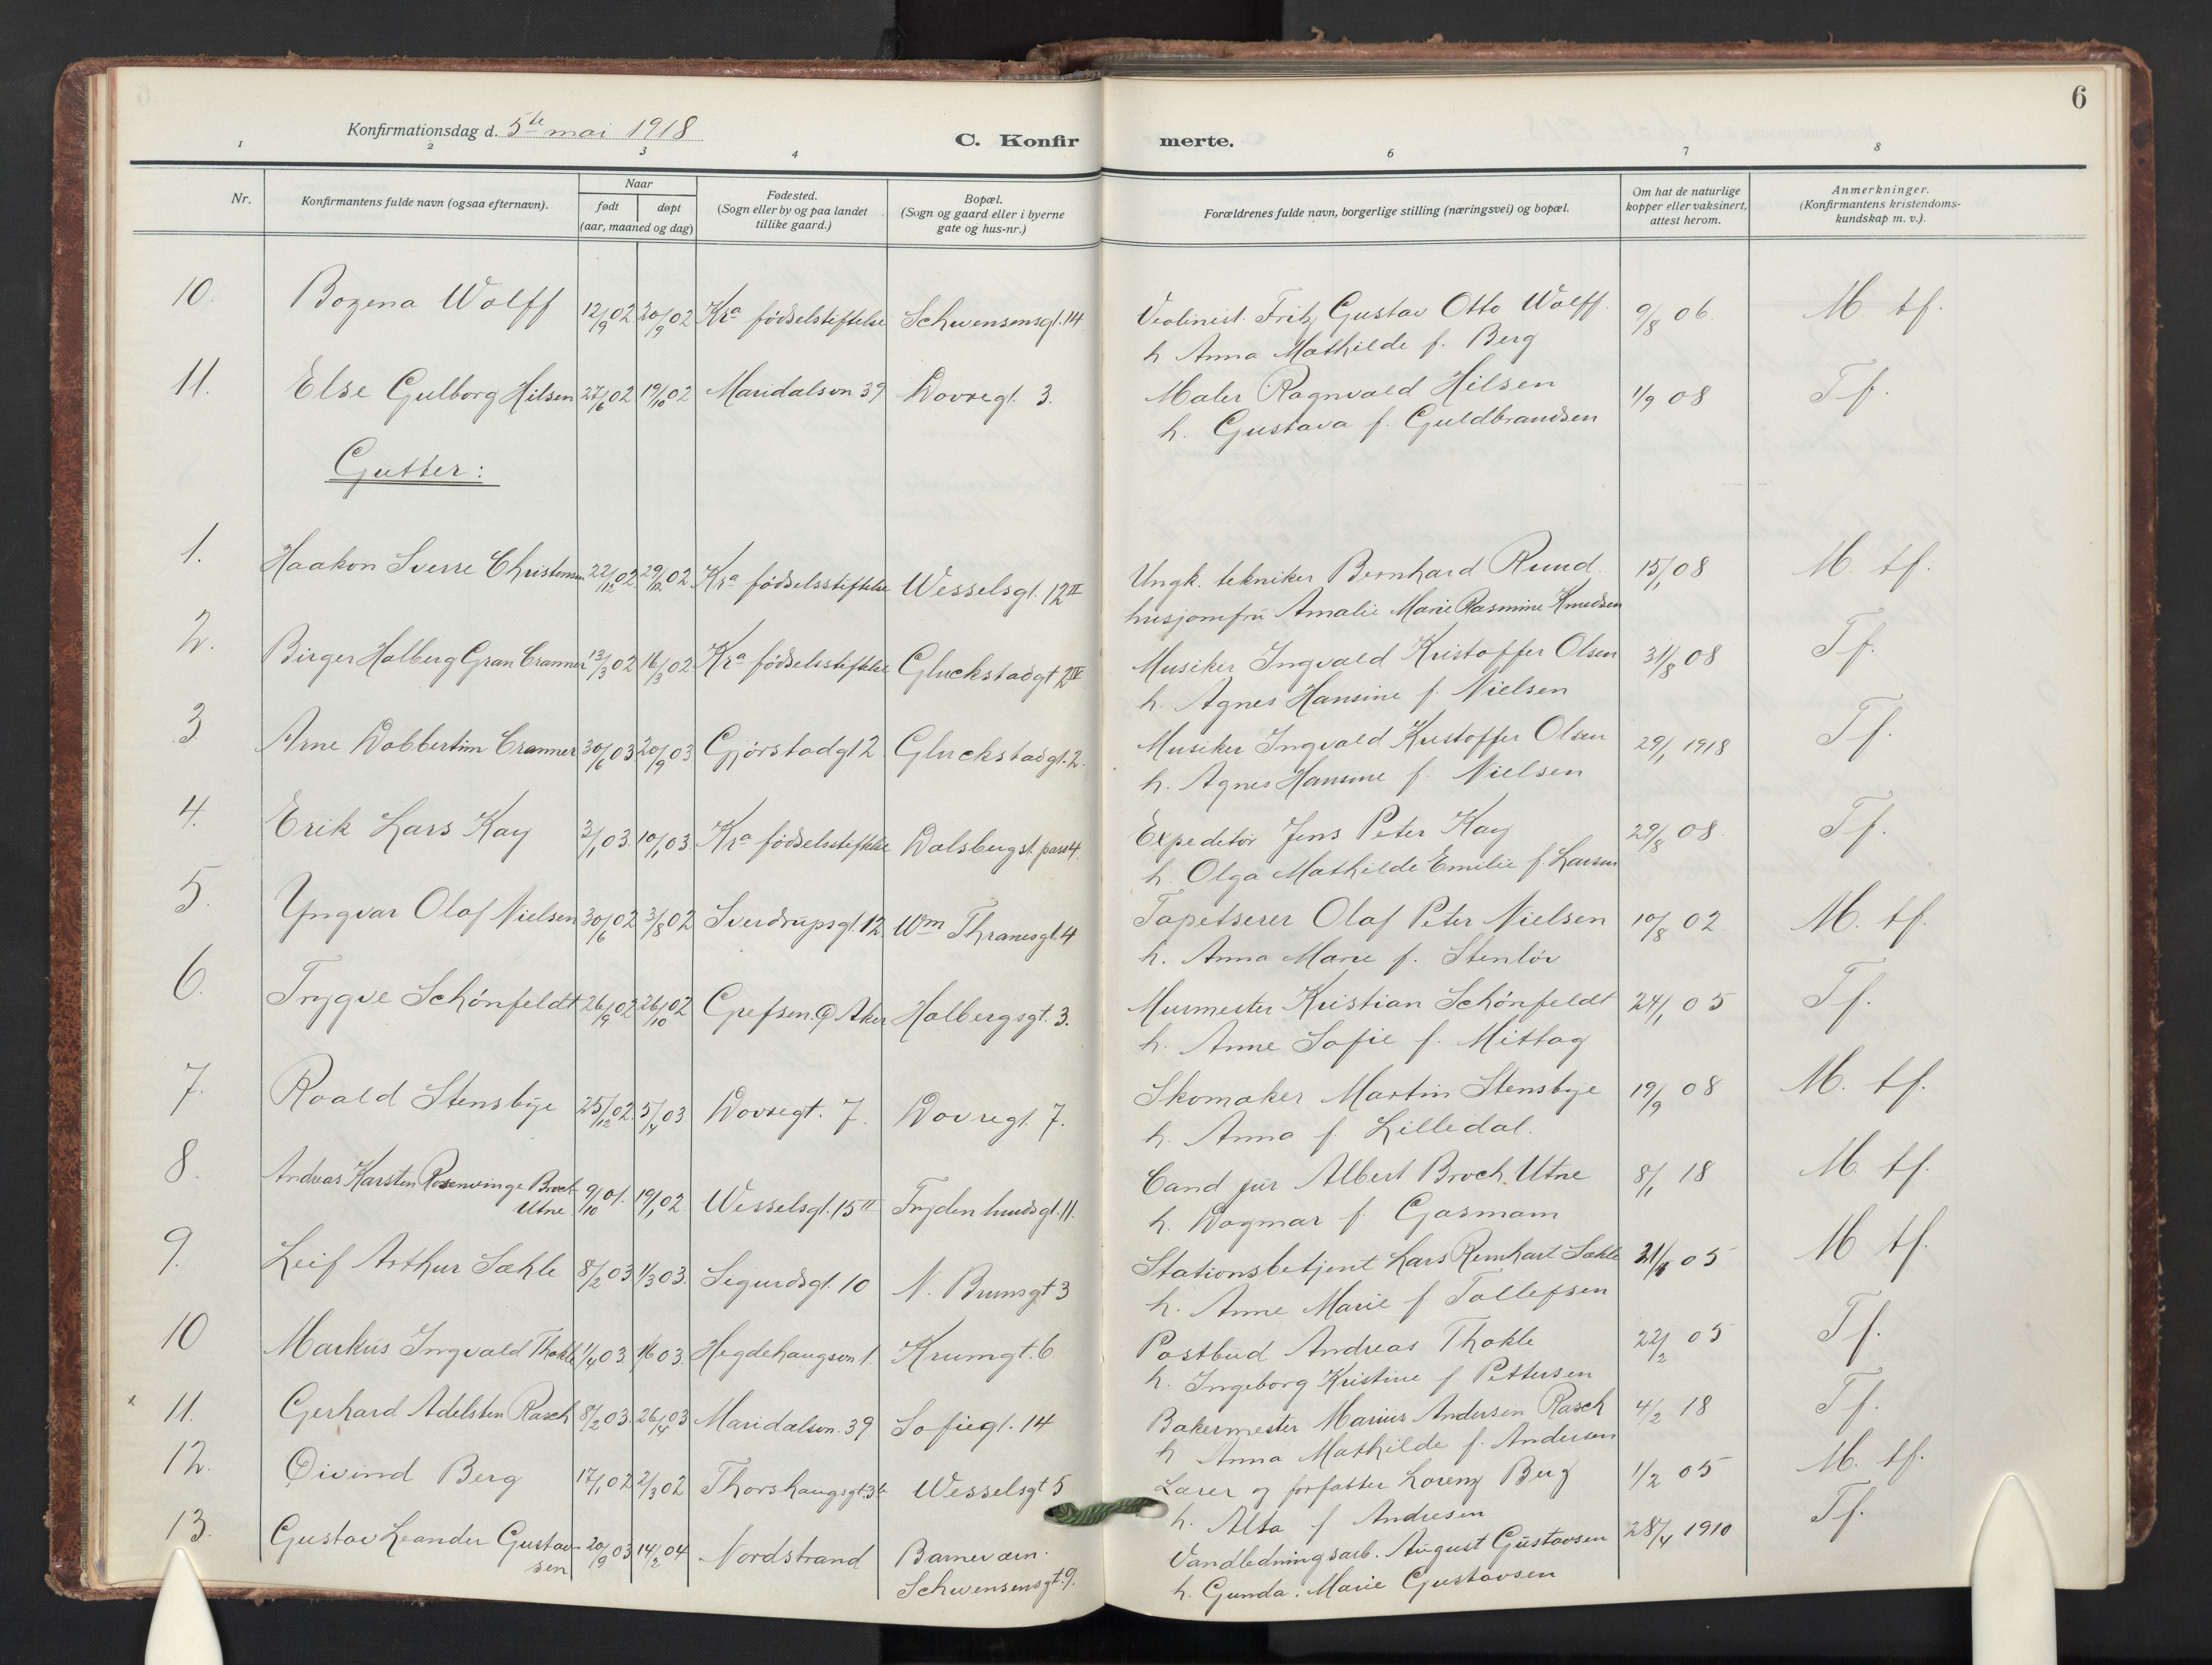 6
Konfirmationsdag d. 5te mai 1918
C. Konfir merte.
1 2 3 4 6 7 8
Nr.
Konfirmantens fulde navn (ogsaa efternavn).
Naar
født døpt
(aar, maaned og dag)
Fødested.
(Sogn eller by og paa landet
tillike gaard.)
Bopæl.
(Sogn og gaard eller i byerne
gate og hus-nr.)
Forældrenes fulde navn, borgerlige stilling (næringsvei) og bopæl.
Om hat de naturlige
kopper eller vaksinert,
attest herom.
Anmerkninger.
(Konfirmantens kristendoms-
kundskap m. v.).
10. Bozena Wolff 12/9 02 20/9 02 Kra fødselstiftelse Schwensensgt. 14 Violinist Fritz Gustav Otto Wolff. 9/8 06. M. tf.
h. Anna Mathilde f. Berg
11. Else Gulborg Hilsen 27/6 02 19/10 02 Maridalsvn 39 Dovregt. 3. Maler Ragnvald Hilsen 1/9 08 Tf.
h. Gustava f. Guldbrandsen
Gutter:
1. Haakon Sverre Christensen 22/12 02 29/12 02 Kra fødselsstiftelse Wesselsgt. 12 II Ungk. tekniker Bernhard Ruud. 15/1 08 M. tf.
husjomfru Amalie Marie Rasmine Knudsen
2. Birger Holberg Gran Cranner 13/3 02 16/3 02 Kra fødselsstiftelse Gluckstadgt 2 IV Musiker Ingvald Kristoffer Olsen 31/8 08 Tf.
h. Agnes Hansine f. Nielsen
3 Arne Dobbertim Cranner 30/6 03 20/9 03 Gjørstadgt 2 Gluckstadgt. 2. Musiker Ingvald Kristoffer Olsen 29/1 1918 Tf.
h. Agnes Hansine f. Nielsen
4. Erik Lars Kay 3/1 03. 10/1 03. Kra fødselsstiftelse Dalsbergst. pass 4. Expeditør Jens Peter Kay 29/8 08. Tf.
h. Olga Mathilde Emilie f. Larsen
5. Yngvar Olaf Nielsen 30/6 02 3/8 02 Sverdrupsgt. 12 Wm Thranesgt. 4 Tapetserer Olaf Peter Nielsen 10/8 02 M. tf.
h. Anna Marie f. Stenløv
6. Trygve Schønfeldt 26/9 02 26/10 02 Grefsen. Ø Aker Holbergsgt. 3. Murmester Kristian Schønfeldt 24/1 05 Tf.
h. Anne Sofie f. Mittag
7. Roald Stensbye 25/12 02. 5/4 03. Dovregt. 7. Dovregt. 7. Skomaker Martin Stensbye 19/9 08 M. tf.
h. Anna f. Lilledal.
8. Andreas Karsten Rosenvinge Broch 9/10 01. 19/1 02 Wesselsgt. 15 II Frydenlundsgt. 11. Cand jur Albert Broch Utne 8/1 18 M. tf.
Utne h. Dagmar f. Gasmam
9. Leif Arthur Sahle 8/2 03 1/3 03. Sigurdsgt. 10 N. Brunsgt 3 Stationsbetjent Lars Reinhart Sahle 05 M tf.
h. Anne Marie f Tollefsen
10 Markus Ingvald Thokle 1/4 03. 1/6 03. Hegdehaugsvn 1. Krumgt. 6 Postbud Andreas Thokle 22/2 05 Tf.
h. Ingeborg Kristine f. Pettersen
x 11. Gerhard Adelsten Rasch 8/2 03. 26/4 03 Maridalsvn. 39 Sofiegt. 14 Bakermester Marius Andersen Rasch 4/2 18 Tf.
h Anna Mathilde f. Andersen
12. Øivind Berg 17/1 02 2/3 02 Thorshaugsgt. 3b Wesselsgt 5 Lærer og forfatter Lorenz Berg 1/2 05 M. tf.
h. Alta f Andresen
13. Gustav Leander Gustav- 20/9 03 14/2 04 Nordstrand Barnevæn. Vandledningsarb. August Gustavsen 28/4 1910 Tf.
sen Schwensensgt. 9. h. Gunda. Marie Gustavsen